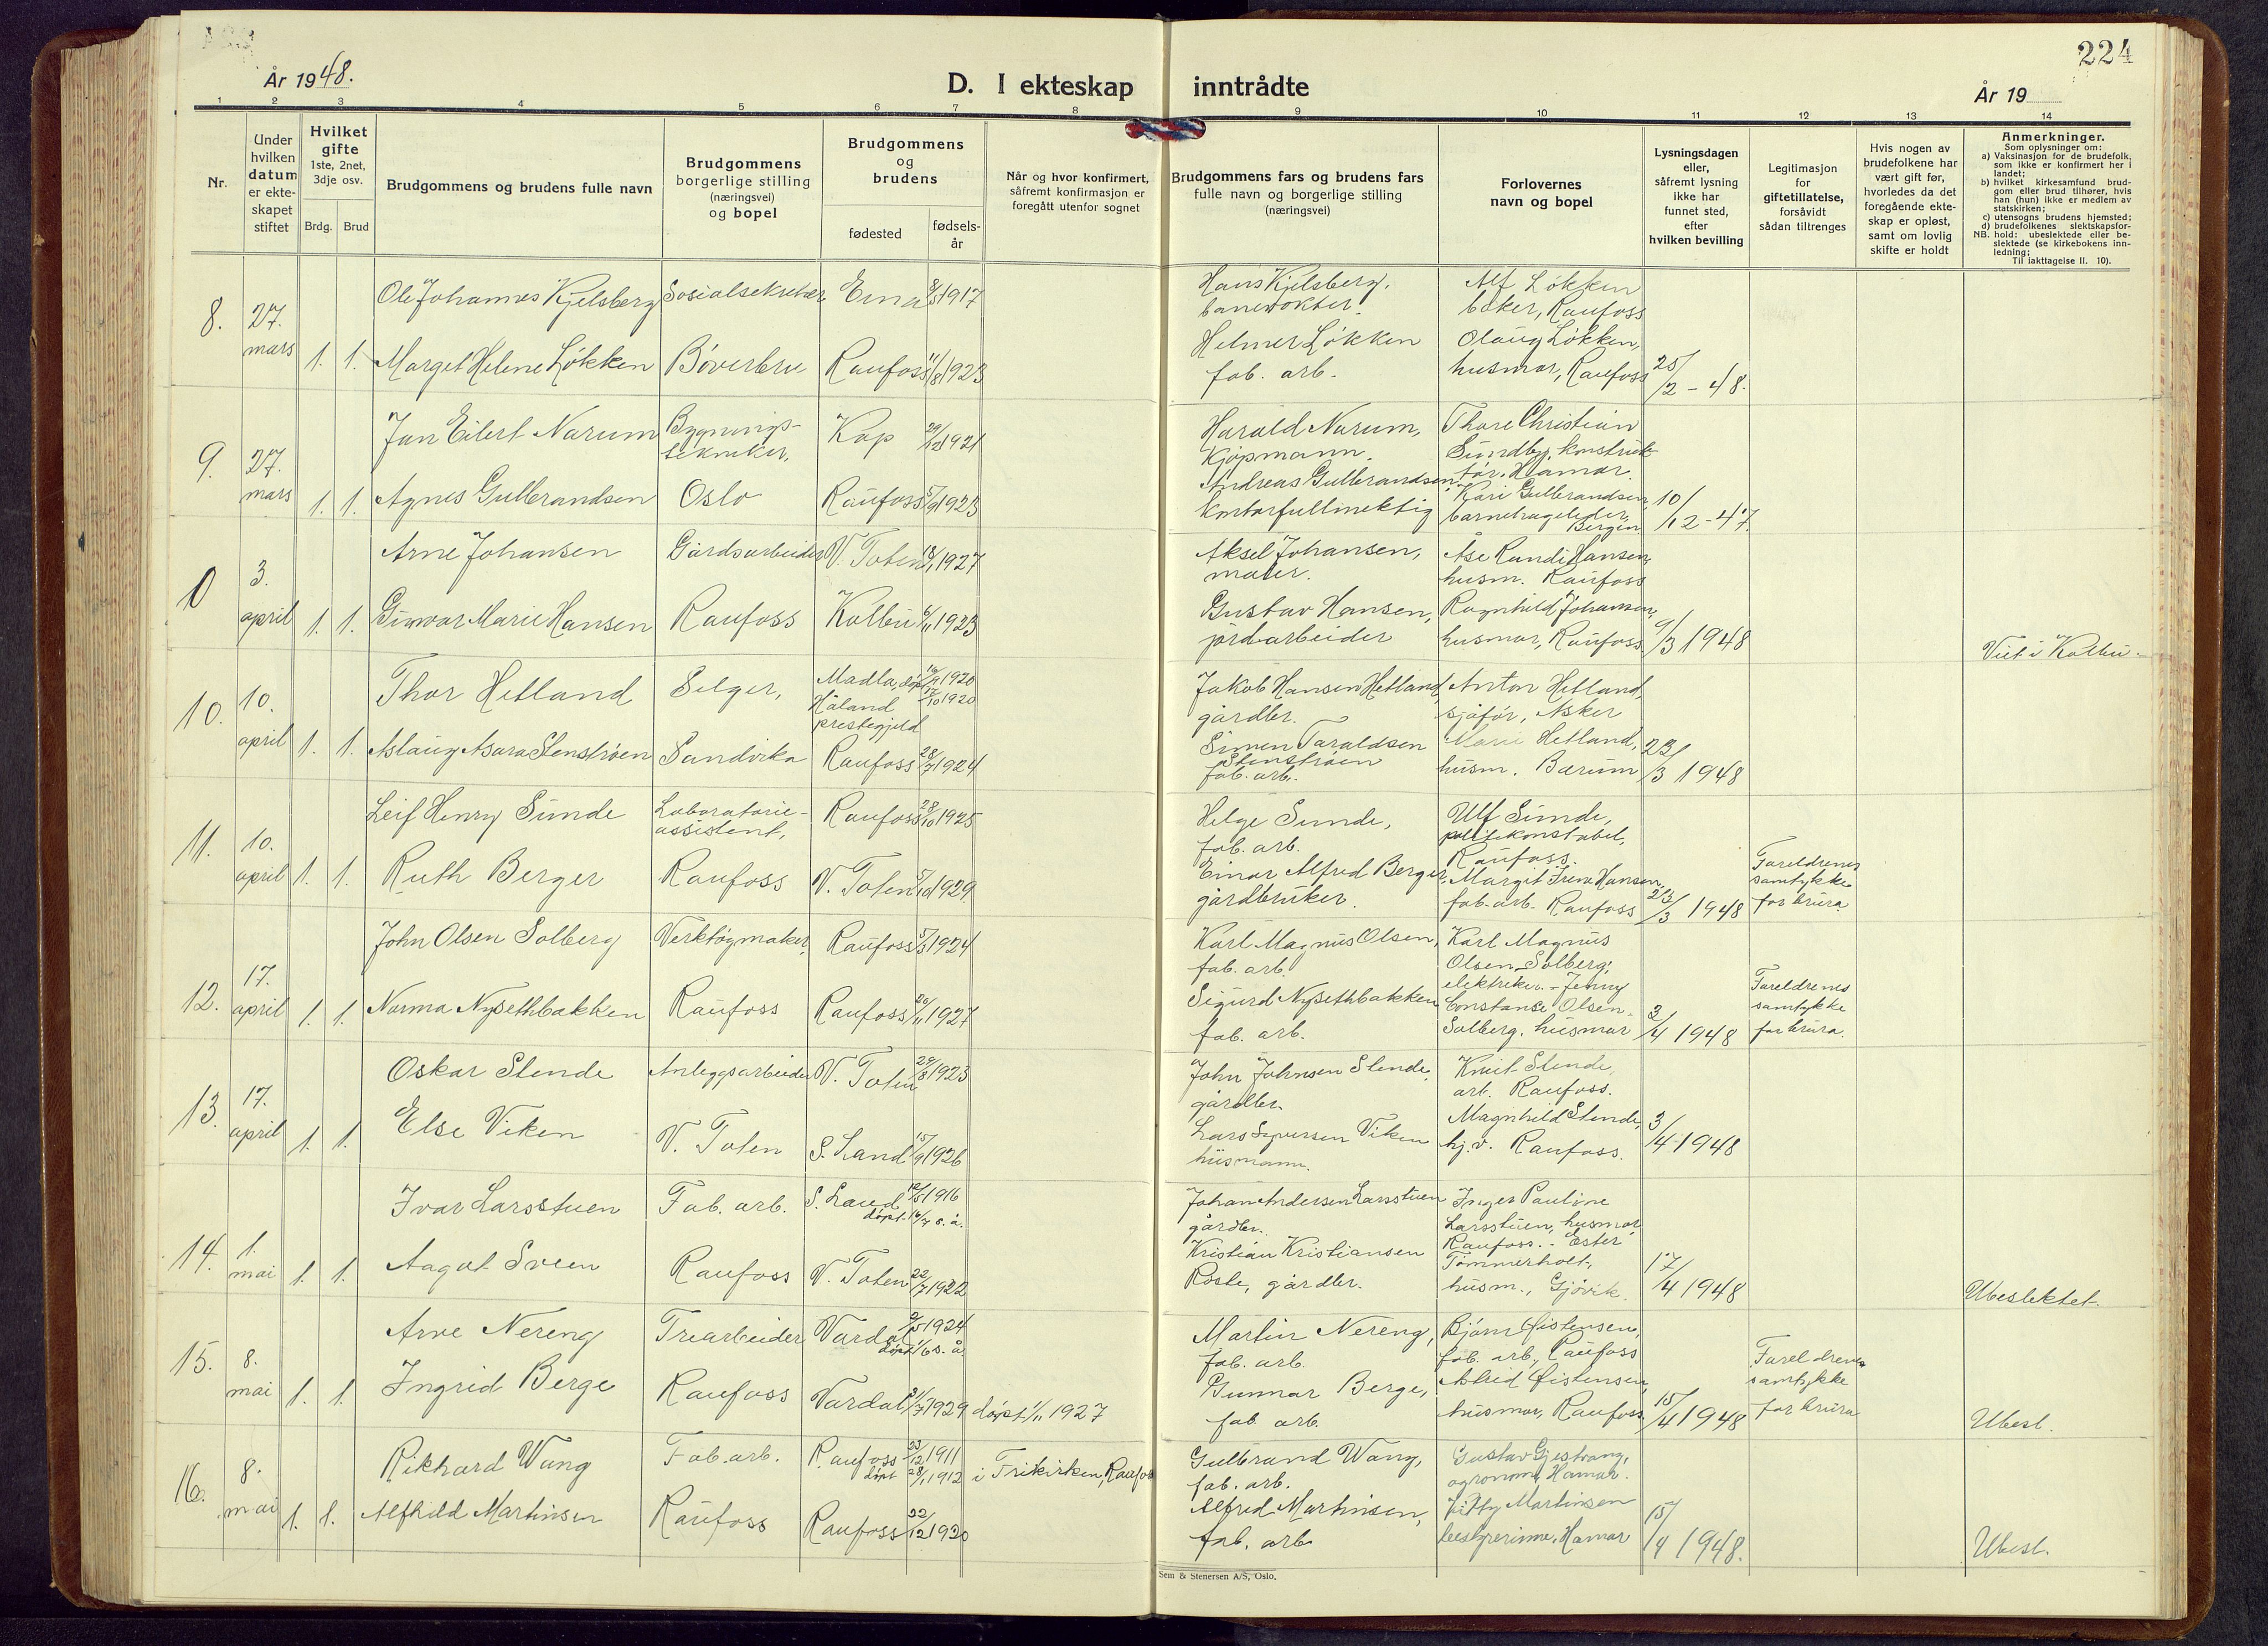 224
År 1948.
D. I ekteskap inntrådte
År 19
1 2 3 4 5 6 7 8 9 10 11 12 13 14
Nr.
Under hvilken datum er ekteskapet stiftet
Hvilket gifte 1ste, 2net, 3dje osv.
Brdg. Brud
Brudgommens og brudens fulle navn
Brudgommens borgerlige stilling (næringsvei) og bopel
Brudgommens og brudens
fødested
fødselsår
Når og hvor konfirmert, såfremt konfirmasjon er foregått utenfor sognet
Brudgommens fars og brudens fars fulle navn og borgerlige stilling (næringsvei)
Forlovernes navn og bopel
Lysningsdagen eller, såfremt lysning ikke har funnet sted, efter hvilken bevilling
Legitimasjon for giftetillatelse, forsåvidt sådan tiltrenges
Hvis nogen av brudefolkene har vært gift før, hvorledes da det foregående ekteskap er opløst, samt om lovlig skifte er holdt
Anmerkninger.
Som oplysninger om:
a) Vaksinasjon for de brudefolk, som ikke er konfirmert her i landet;
b) hvilket kirkesamfund brudgom eller brud tilhører, hvis han (hun) ikke er medlem av statskirken;
c) utensogns brudens hjemsted;
d) brudefolkenes slektskapsforhold: ubeslektede eller beslektede (se kirkebokens innledning;
NB.
Til iakttagelse II. 10).
8. 27. mars 1. 1.
Ole Johannes Kjelsberg Sosialsekretær Eina 1917
Hans Kjelsberg, banevokter.
Alf Løkken baker, Raufoss
Margit Helene Løkken Bøverbru Raufoss 11/8 1923
Helmer Løkken fab. arb.
Olaug Løkken, husmor, Raufoss 25/2 - 48.
9. 27. mars 1. 1.
Jan Eilert Narum Bygningstekniker, Kap 1921
Harald Narum, Kjøpmann.
Thore Christian Sundby, konstruktør, Hamar.
Agnes Gulbrandsen Oslo Raufoss 5/9 1923
Andreas Gulbrandsen, kontorfullmektig
Kari Gulbrandsen, barnehageleder, Bergen 10/12 - 47.
0 3. april 1. 1.
Arne Johansen Gårdsarbeider V. Toten 18/1 1927
Aksel Johansen, maler.
Åse Randi Hansen, husm. Raufoss
Gunvor Marie Hansen Raufoss Kolbu 6/11 1923
Gustav Hansen, jordarbeider
Ragnhild Johansen, husmor, Raufoss. 9/3 1948
Viet i Kolbu.
10. 10. april 1. 1.
Thor Hetland Selger, Madla, døpt 1920 17/10 1920 Håland prestegjeld
Jakob Hansen Hetland, gårdbr.
Anton Hetland, sjåfør, Asker
Aslaug Asora Stenstrøen Sandvika Raufoss 28/7 1924
Simen Taraldsen Stenstrøen fab. arb.
Marie Hetland, husm. Bærum 23/3 1948
11. 10. april 1. 1.
Leif Henry Sunde Laboratorieassistent, Raufoss 28/10 1925
Helge Sunde, fab. arb.
Ulf Sunde, politikonstabel, Raufoss.
Ruth Berger Raufoss V. Toten 5/10 1929
Einar Alfred Berger, gårdbruker.
Margit Irene Hansen, fab. arb. Raufoss 23/3 1948
Foreldrenes samtykke for brura
12. 17. april 1. 1.
John Olsen Solberg Verktøymaker, Raufoss 5/3 1924
Karl Magnus Olsen, fab. arb.
Karl Magnus Olsen Solberg, elektriker. - Jenny Constanse Olsen - Solberg, husmor 3/4 1948
Norma Nysethbakken Raufoss Raufoss 20/11 1927
Sigurd Nysethbakken fab. arb.
Foreldrenes samtykke for brura.
13. 17. april 1. 1.
Oskar Stende Anleggsarbeider V. Toten 29/8 1923
John Johnsen Stende, gårdbr.
Knut Stende, arb. Raufoss.
Else Viken V. Toten S. Land 15/9 1926
Lars Syversen Viken husmann.
Magnhild Stende, hj.v. Raufoss. 3/4 1948
14. 1. mai 1. 1.
Ivar Larsstuen Fab. arb. S. Land 1916 døpt 16/7 s. å.
Johan Andersen Larsstuen gårdbr.
Inger Pauline Larsstuen, husmor, Raufoss. - Ester Tømmerholt, husm., Gjøvik. 17/4 1948
Aagot Sveen Raufoss V. Toten 22/7 1922
Kristian Kristiansen Roste, gårdbr.
Ubeslektet.
15. 8. mai 1. 1.
Arve Nereng Trearbeider Vardal 2/5 1924 døpt 1/6 s. å.
Martin Nereng, fab. arb.
Bjørn Øistensen, fab. arb., Raufoss
Ingrid Berge Raufoss Vardal 31/7 1929 døpt 1/11 1927
Gunnar Berge, fab. arb.
Astrid Øistensen, husmor, Raufoss 15/4 1948
Foreldrenes samtykke for brura
Ubesl.
16. 8. mai 1. 1.
Rikhard Wang Fab. arb. Raufoss 23/12 1911 døpt 28/1 1912 i Frikirken, Raufoss
Gulbrand Wang, fab. arb.
Gustav Gjestvang, agronom, Hamar.
Alfhild Martinsen Raufoss Raufoss 22/12 1920
Alfred Martinsen, fab. arb.
Kitty Martinsen bestyrerinne, Hamar 15/4 1948.
Ubesl.
Sem & Stenersen A/S, Oslo.